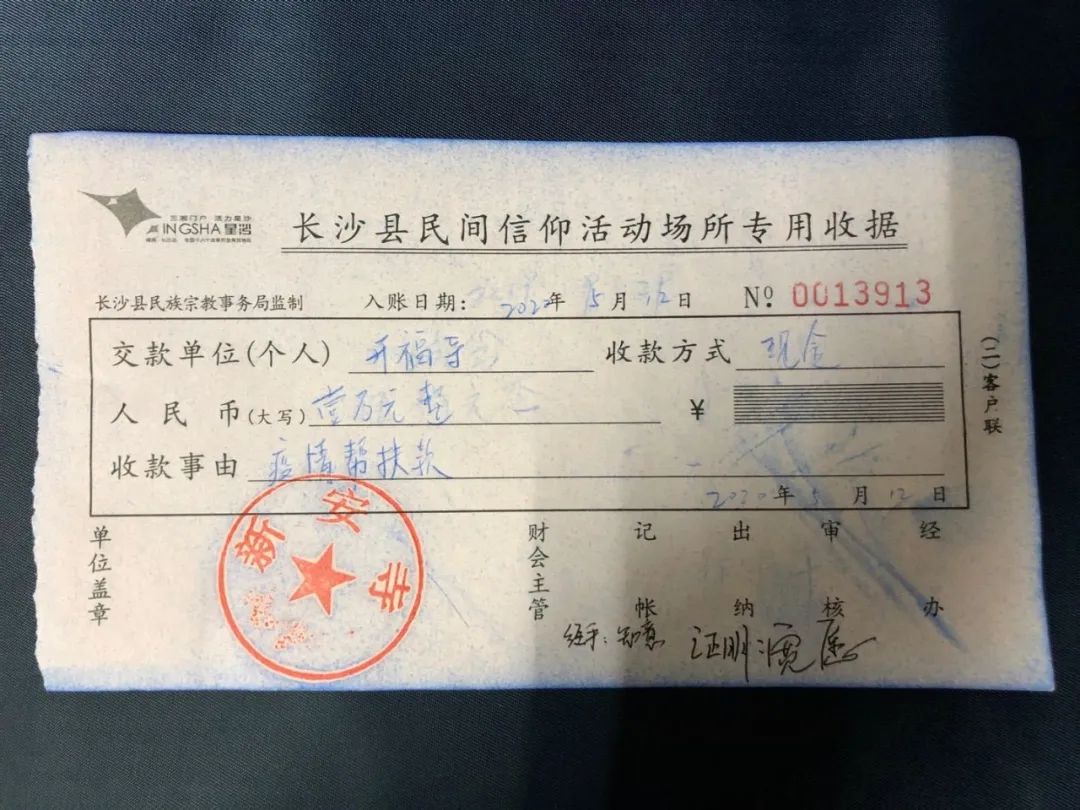 三湘门户 活力星沙
INGSHA星沙
长沙县民间信仰活动场所专用收据
长沙县民族宗教事务局监制 入账日期: 2020年 5月 12日 Nº 0013913
交款单位(个人) 开福寺 收款方式 现金
人民币(大写) 壹万元整 ¥
收款事由 疫情帮扶款
2020年 5月 12日
(二)客户联
单位盖章
新安寺
财会主管 记帐 出纳 审核 经办
经手: 证明: